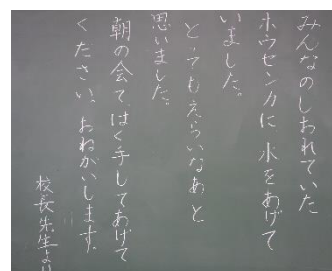 みんなのしおれていた
ホウセンカに水をあげて
いました。
とってもえらいなあと
思いました。
朝の会で、はく手してあげて
ください。おねがいします。
校長先生より